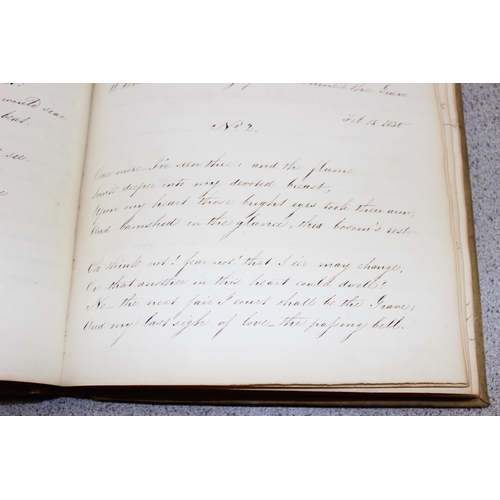 would
beat.
see
the Grave
Feb 15 1830
No 2.
Once more I've seen thee; and the flame
Sunk deeper into my devoted breast,
Upon my heart those bright eyes took their aim,
And banished in the glance, this bosom's rest
Oh think not! fear not! that I e'er may change,
Or that another in this heart could dwell!
No — the next fair I court shall be the Grave;
And my last sigh of love — the passing bell.